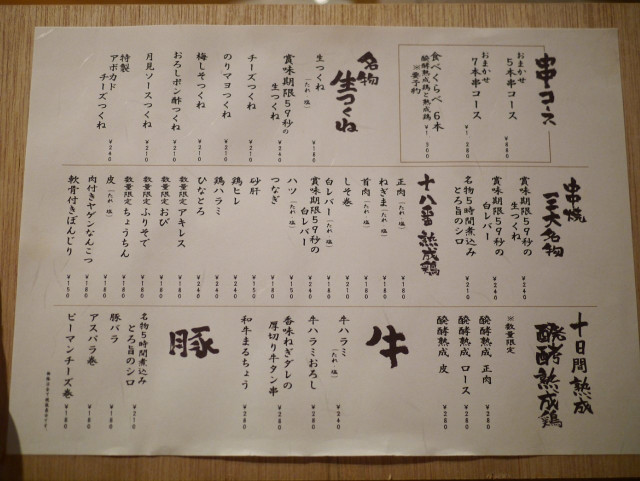 串コース
おまかせ
5本串コース
¥880
おまかせ
7本串コース
¥1,280
食べくらべ 6本
醗酵熟成鶏と熟成鶏
※要予約
名物
生つくね
生つくね(たれ 塩)
¥180
賞味期限59秒の
生つくね
チーズつくね
¥210
のりマヨつくね
¥210
梅しそつくね
¥210
おろしポン酢つくね
¥210
月見ソースつくね
¥210
特製
アボカド
チーズつくね
¥240
串焼
三大名物
賞味期限59秒の
生つくね
¥240
賞味期限59秒の
白レバー
¥240
名物5時間煮込み
とろ旨のシロ
¥210
十八番 熟成鶏
正肉(たれ 塩)
¥180
ねぎま(たれ 塩)
¥180
首肉(たれ 塩)
¥180
しそ巻
¥210
白レバー(たれ 塩)
¥180
賞味期限59秒の
白レバー
¥240
ハツ(たれ 塩)
¥150
つなぎ
¥180
砂肝
¥150
鶏ヒレ
¥240
鶏ハラミ
¥240
ひなとろ
¥240
数量限定アキレス
数量限定おび
¥180
数量限定ふりそで
¥180
数量限定ちょうちん
¥180
皮(たれ 塩)
¥150
肉付きヤゲンなんこつ
¥180
軟骨付きぼんじり
¥150
十日間熟成
醗酵熟成鶏
※数量限定
醗酵熟成 正肉
¥280
醗酵熟成 ロース
¥280
醗酵熟成 皮
¥240
牛
牛ハラミ(たれ 塩)
¥240
牛ハラミおろし
¥280
香味ねぎダレの
厚切り牛タン串
¥280
和牛まるちょう
¥240
豚
名物5時間煮込み
とろ旨のシロ
¥210
豚バラ
¥180
アスパラ巻
¥180
ピーマンチーズ巻
¥180